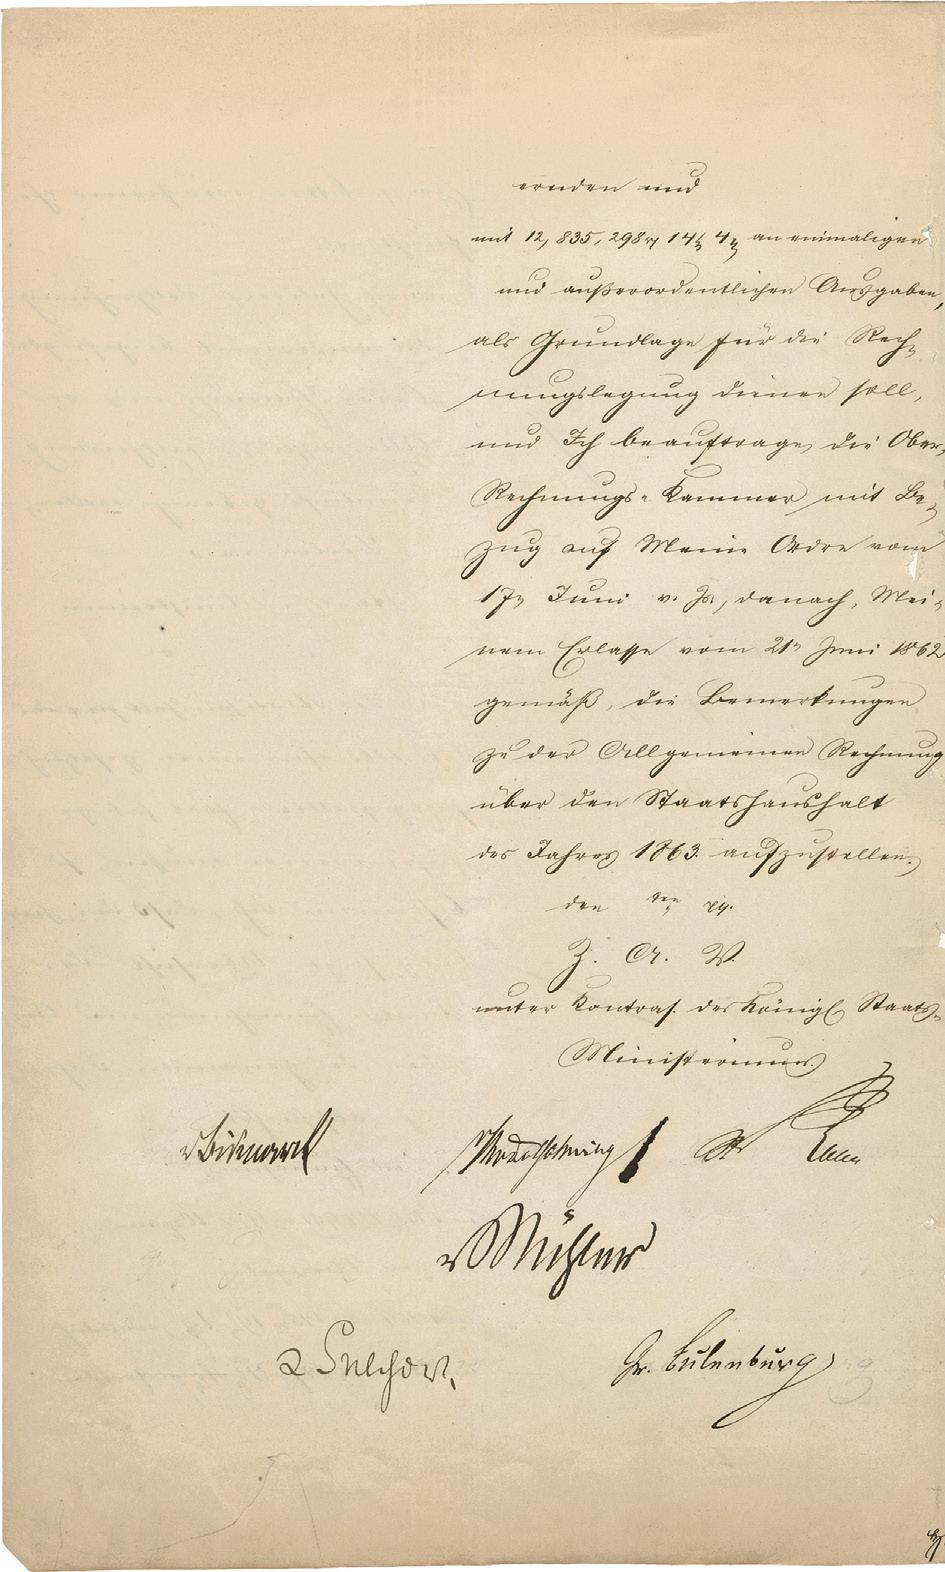 ernden und
mit 12,835,298 14 4 an einmaligen
und außerordentlichen Ausgaben,
als Grundlage für die Rech-
nungslegung dienen soll,
und Ich beauftrage die Ober-
Rechnungs-Kammer mit Be-
zug auf Meine Ordre vom
17n Juni v. Js., danach, Mei-
nem Erlasse vom 21n Juni 1862
gemäß, die Bemerkungen
zu der Allgemeinen Rechnung
über den Staatshaushalt
des Jahres 1863. aufzustellen.
den ten
Z. A. W.
unter Kontras. des Königl Staats-
Ministeriums.
v Bismarck v Bodelschwingh Roon
v Mühler
v Selchow.
Gr. Eulenburg